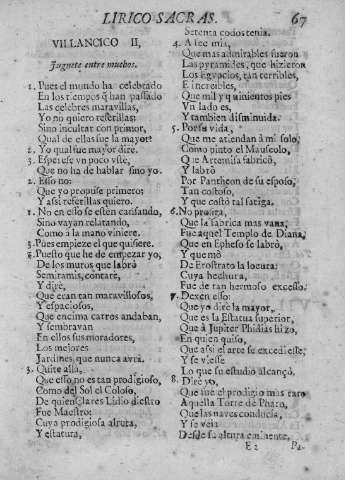 LIRICO SACRAS. 67
VILLANCICO II,
Juguete entre muchos.
1. Pues el mundo ha celebrado
En los tiempos q̃ han passado
Las celebres maravillas,
Yo no quiero referillas:
Sino incultar con primor,
Qual de ellas fue la mayor?
2. Yo qual fue mayor dire.
3. Esperese vn poco vste,
Que no ha de hablar sino yo.
2. Esso no:
Que yo propuse primero;
Y assi referillas quiero.
1. No en esso se estèn cansando,
Sino vayan relatando,
Como à la mano viniere.
3. Pues empieze el que quisiere.
2. Puesto que he de empezar yo,
De los muros que labrò
Semiramis, contarè,
Y dirè,
Que eran tan maravillosos,
Y espaciosos,
Que encima carros andaban,
Y sembravan
En ellos sus moradores,
Los mejores
Jardines, que nunca avrà.
3. Quite allà,
Que esso no es tan prodigioso,
Como del Sol el Coloso,
De quien Clares Lidio diestro
Fue Maestro:
Cuya prodigiosa altura,
Y estatura,
Setenta codos tenia.
4. A fee mia,
Que mas admirables fueron
Las pyramides, que hizieron
Los Egypcios, tan terribles,
E increibles,
Que mil y quinientos pies
Vn lado es,
Y tambien disminuida.
5. Por su vida,
Que me atiendan à mi solo,
Como pinto el Mauseolo,
Que Artemisa fabricò,
Y labrò
Por Pantheon de su esposo,
Tan costoso,
Y que costò tal fatiga.
6. No prosiga,
Que la fabrica mas vana,
Fue aquel Templo de Diana,
Que en Epheso se labrò,
Y quemò
De Erostrato la locura:
Cuya hechura,
Fue de tan hermoso excesso.
7. Dexen esso:
Que yo dire la mayor,
Que es la Estatua superior,
Que à Jupiter Phidias hizo,
En quien quiso,
Que assi el arte se excediesse;
Y se viesse
Lo que su estudio alcançò.
8. Dire yo,
Que fue el prodigio mas raro
Aquella Torre de Pharo,
Que las naves conducia,
Y se veia
Desde su altura eminente,
E 2 Pa-